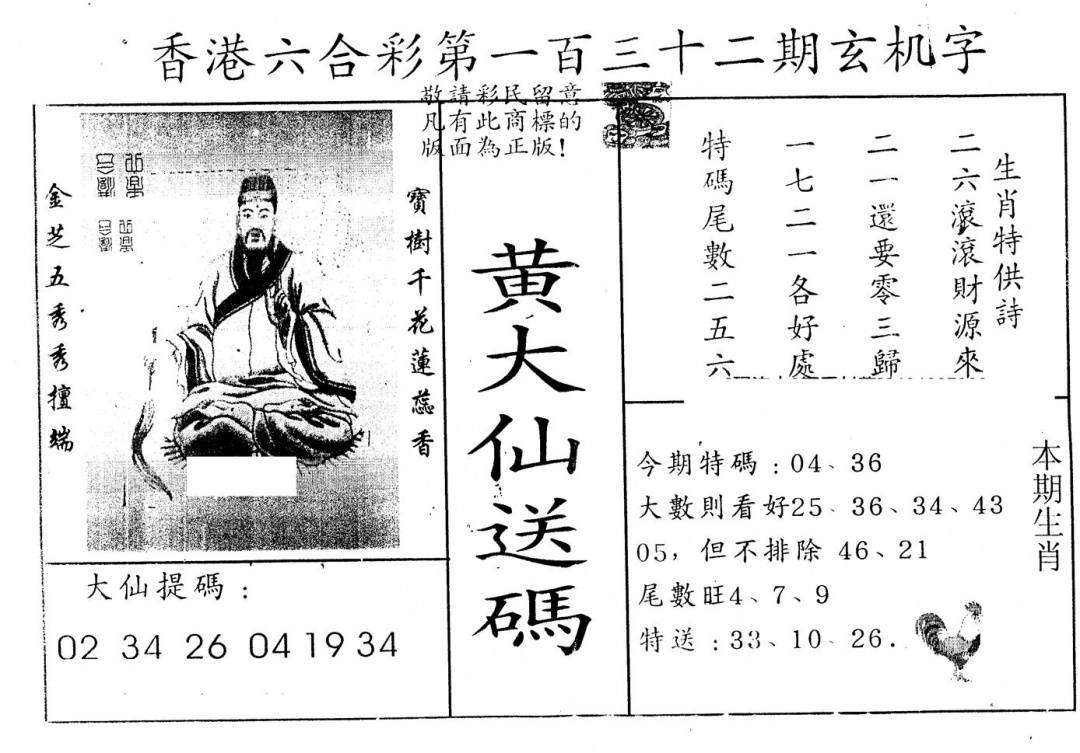 香港六合彩第一百三十二期玄机字
敬請彩民留意
凡有此商標的
版面為正版！
金芝五秀秀擅端
寶樹千花蓮蕊香
黄大仙送碼
生肖特供詩
二六滾滾財源來
二一還要零三歸
一七二一各好處
特碼尾數二五六
今期特碼：04、36
大數則看好25、36、34、43
05，但不排除 46、21
尾數旺4、7、9
特送：33、10、26.
本期生肖
大仙提碼：
02 34 26 04 19 34